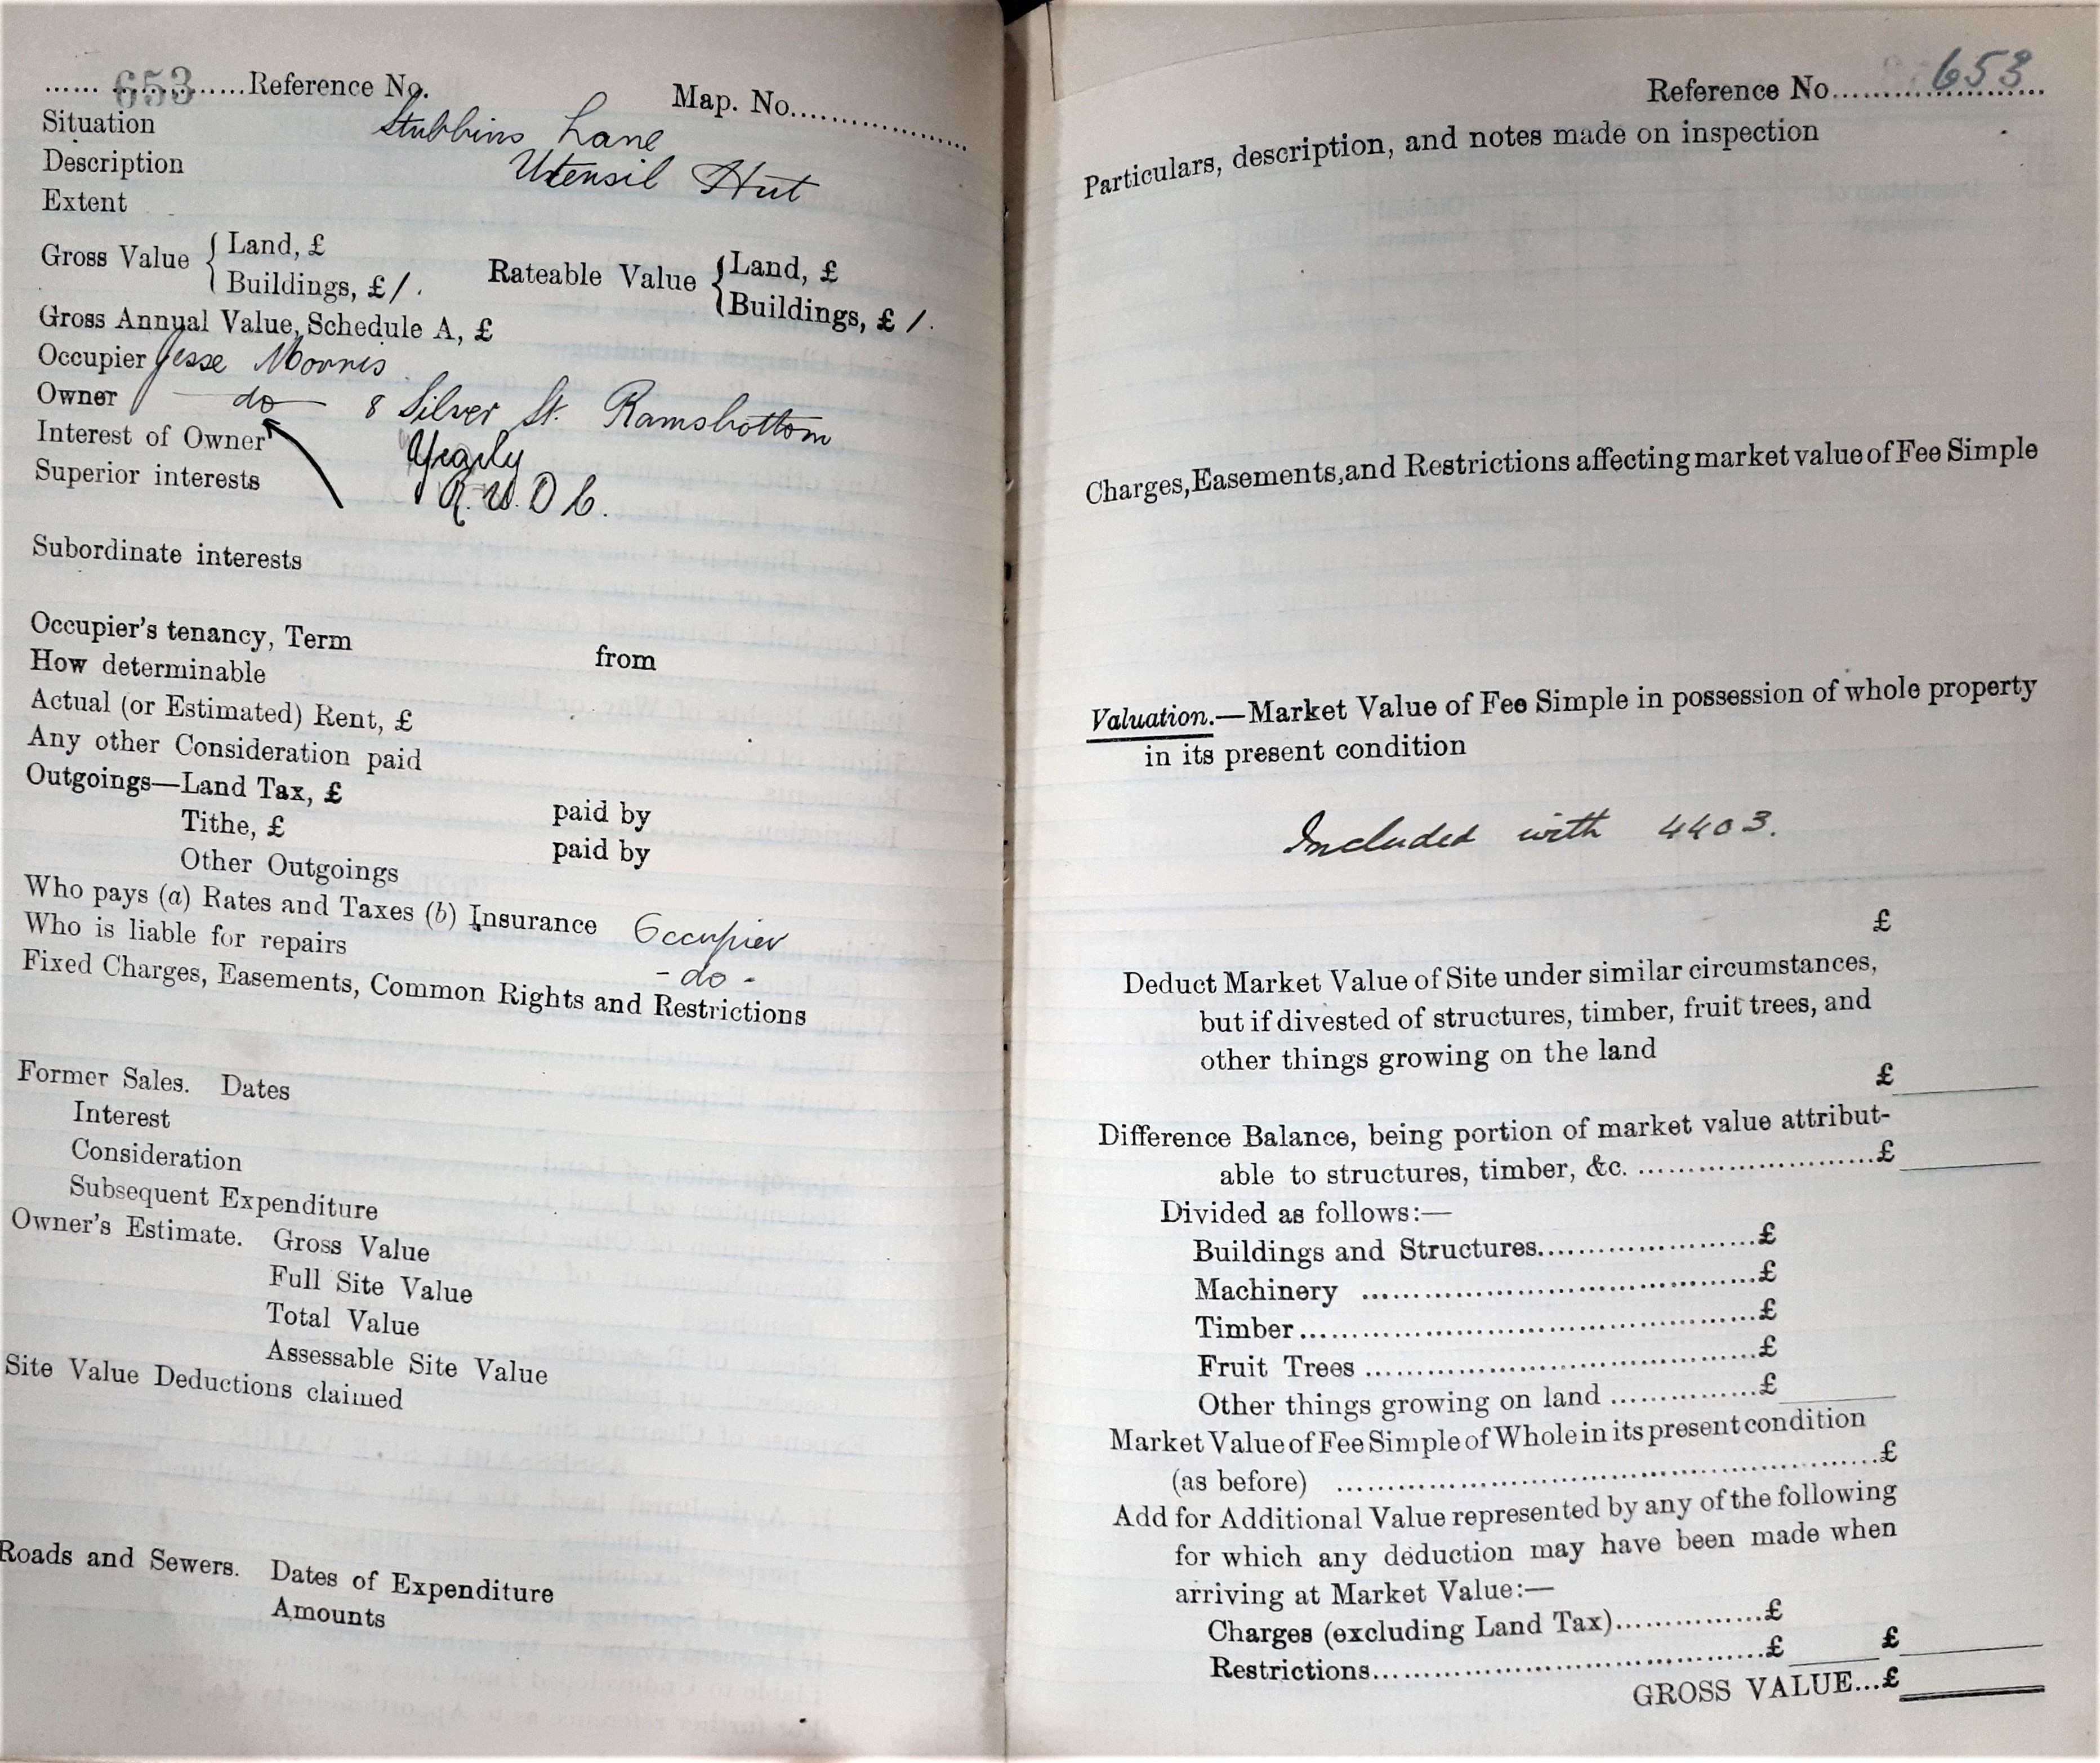 ...... 653 ......Reference No.
Map. No....................
Situation Stubbins Lane
Description Utensil Hut
Extent
Gross Value { Land, £
Buildings, £ 1.
Rateable Value { Land, £
Buildings, £ 1.
Gross Annual Value, Schedule A, £
Occupier Jesse Morris
Owner — do — 8 Silver St. Ramsbottom
Interest of Owner Yearly
Superior interests R.U.D.C.
Subordinate interests
Occupier's tenancy, Term from
How determinable
Actual (or Estimated) Rent, £
Any other Consideration paid
Outgoings—Land Tax, £ paid by
Tithe, £ paid by
Other Outgoings
Who pays (a) Rates and Taxes (b) Insurance Occupier
Who is liable for repairs - do -
Fixed Charges, Easements, Common Rights and Restrictions
Former Sales. Dates
Interest
Consideration
Subsequent Expenditure
Owner's Estimate. Gross Value
Full Site Value
Total Value
Assessable Site Value
Site Value Deductions claimed
Roads and Sewers. Dates of Expenditure
Amounts
Reference No. 653
Particulars, description, and notes made on inspection
Charges, Easements, and Restrictions affecting market value of Fee Simple
Valuation.—Market Value of Fee Simple in possession of whole property
in its present condition
Included with 4403.
£
Deduct Market Value of Site under similar circumstances,
but if divested of structures, timber, fruit trees, and
other things growing on the land
£
Difference Balance, being portion of market value attribut-
able to structures, timber, &c. ........................£
Divided as follows:—
Buildings and Structures......................£
Machinery ......................£
Timber......................£
Fruit Trees ......................£
Other things growing on land ................£
Market Value of Fee Simple of Whole in its present condition
(as before) ......................£
Add for Additional Value represented by any of the following
for which any deduction may have been made when
arriving at Market Value:—
Charges (excluding Land Tax)...............£
Restrictions......................£ £
GROSS VALUE...£